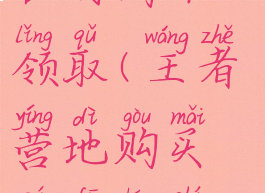 lǐng qǔ wáng zhě
领取(王者
yíng dì gòu mǎi
营地购买